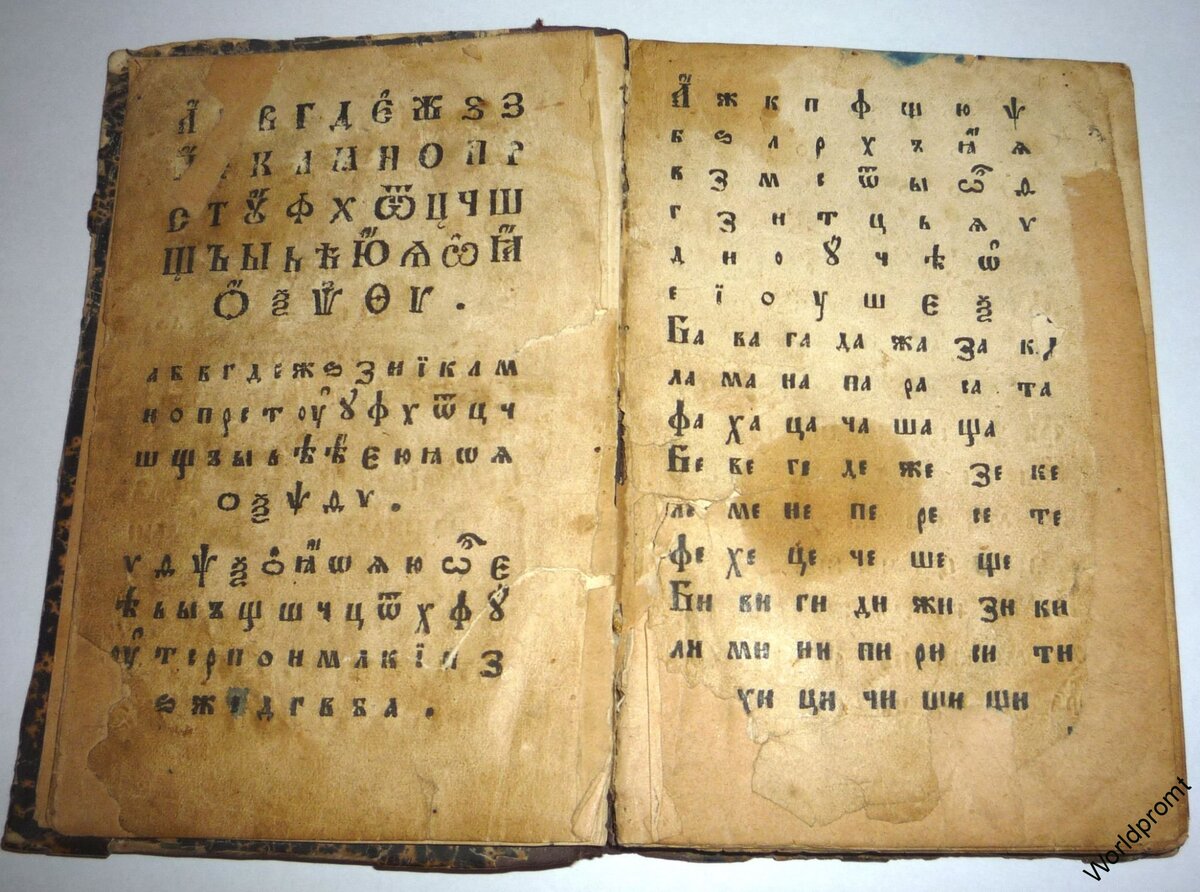 А В Г Д Є Ж Ѕ З
К Л М Н О П Р
С Т Ꙋ Ф Х Ѿ Ц Ч Ш
Щ Ъ Ы Ь Ѣ Ю Ѧ Ѡ Ꙗ
Ѻ Ѯ Ѱ Ѳ Ѵ .
а б в г д е ж ѕ з и ї к л м
н о п р с т оу ꙋ ф х ѿ ц ч
ш щ ъ ы ь ѣ ѣ є ю ꙗ ѡ ѧ
ѻ ѯ ѱ ѳ ѵ .
ѵ ѳ ѱ ѯ ѻ ꙗ ѡ ѧ ю ѽ є
ѣ ь ы ъ щ ш ч ц ѿ х ф ꙋ
оу т с р п о н м л к ї и з
ѕ ж д г в б а .
А ж к п ф ш ю ѱ
б ѕ л р х ъ ꙗ ѧ
в з м с ѿ ы ѽ ѳ
г з н т ц ь ѧ ѵ
д и о ꙋ ч ѣ ѡ
е ї о у ш є ѯ
Ба ва га да жа за ка
ла ма на па ра са та
фа ха ца ча ша ща
Бе ве ге де же зе ке
ле ме не пе ре се те
фе хе це че ше ще
Би ви ги ди жи зи ки
ли ми ни пи ри си ти
хи ци чи ши щи
Worldpromt